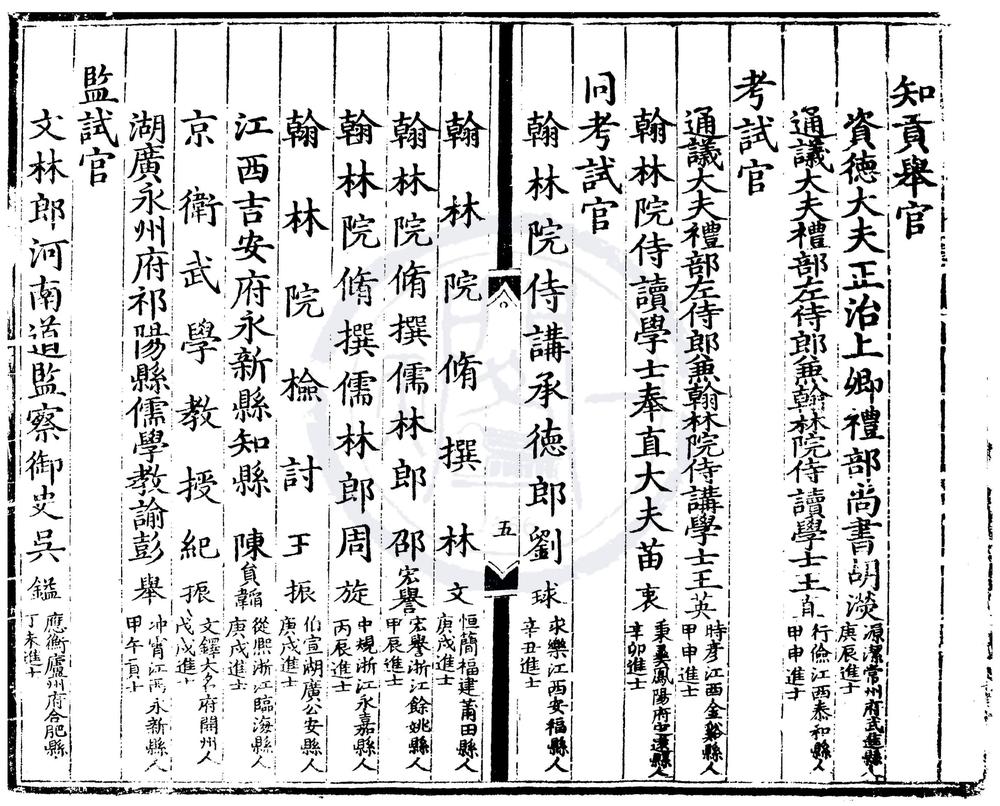 知貢舉官
資德大夫正治上卿禮部尚書胡濙 源潔常州府武進縣人 庚辰進士
通議大夫禮部左侍郎兼翰林院侍讀學士王直 行儉江西泰和縣人 甲申進士
考試官
通議大夫禮部左侍郎兼翰林院侍講學士王英 時彥江西金谿縣人 甲申進士
翰林院侍讀學士奉直大夫苗衷 秉彝鳳陽府定遠縣人 辛卯進士
同考試官
翰林院侍講承德郎劉球 求樂江西安福縣人 辛丑進士
五
翰林院脩撰林文 恒簡福建莆田縣人 庚戌進士
翰林院脩撰儒林郎邵宏譽 宏譽浙江餘姚縣人 甲辰進士
翰林院脩撰儒林郎周旋 中規浙江永嘉縣人 丙辰進士
翰林院檢討王振 伯宣湖廣公安縣人 庚戌進士
江西吉安府永新縣知縣陳員韜 從熙浙江臨海縣人 庚戌進士
京衛武學教授紀振 文鐸大名府開州人 戊戌進士
湖廣永州府祁陽縣儒學教諭彭舉 冲霄江西永新縣人 甲午貢士
監試官
文林郎河南道監察御史吳鎰 應衡廬州府合肥縣 丁未進士